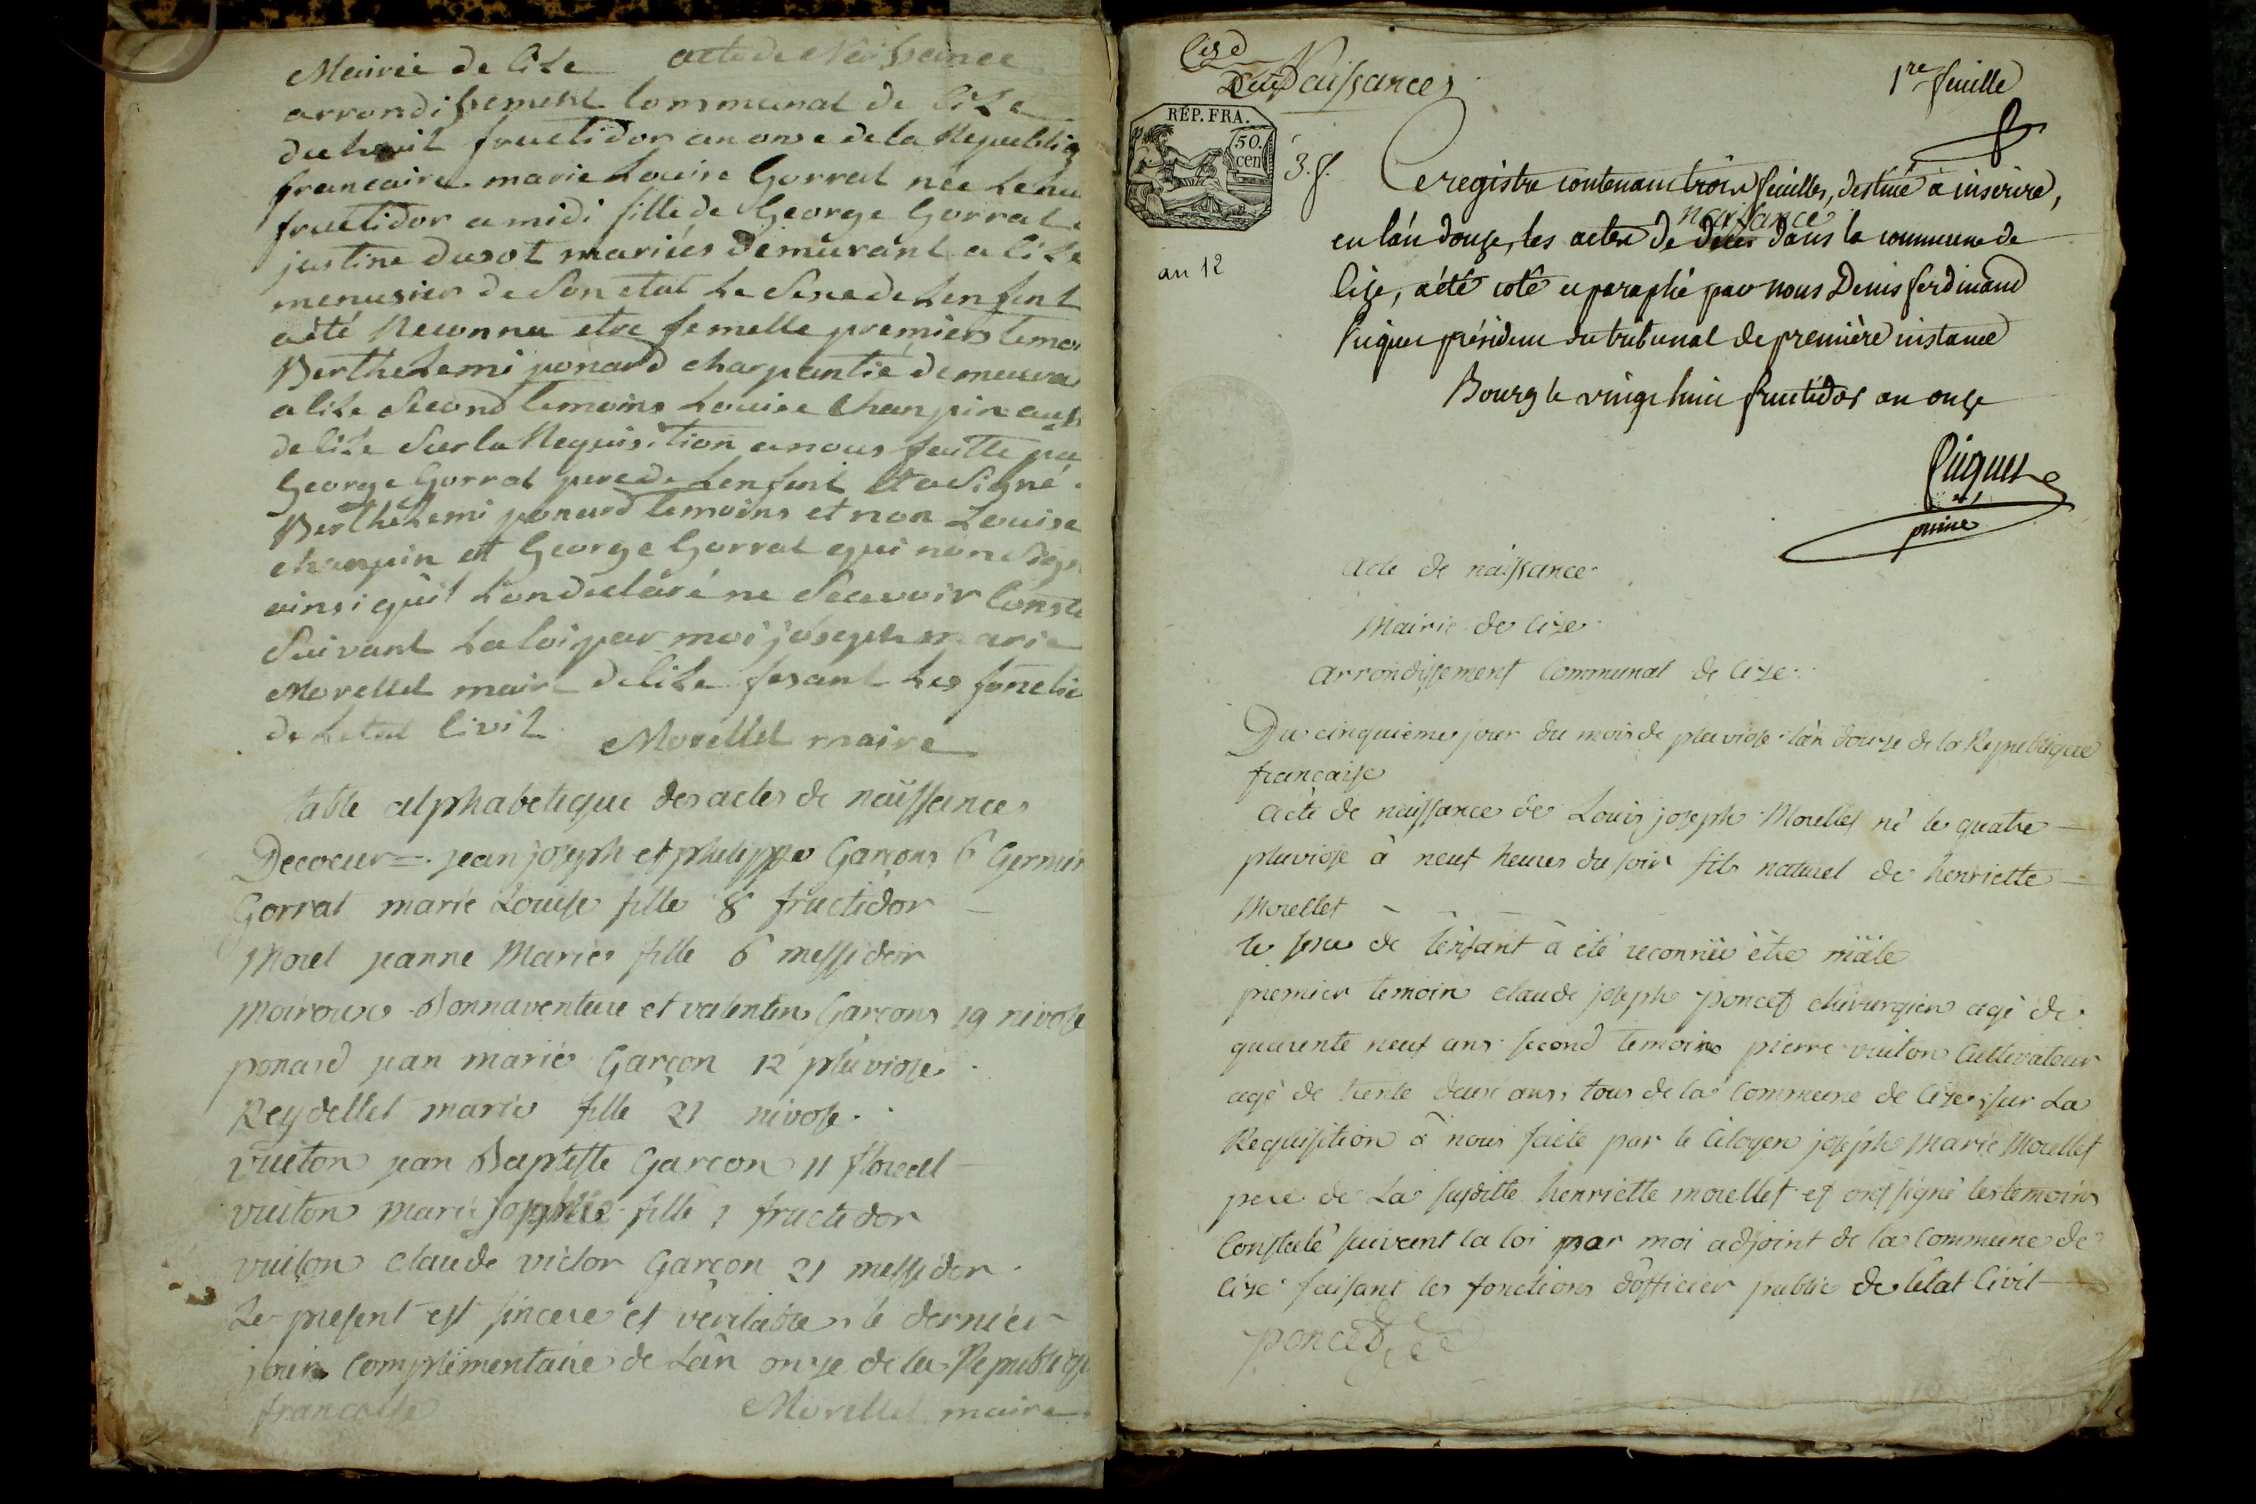 Mairie de Cize acte de Naissance
arrondissement Communal de Cize
du huit fructidor an onse de la Republiq
francaise marie Louise Gorrat née le hu
fructidor a midi fille de George Gorrat
justine dusot mariés demurant a Cize
menusier de son etat Le Sexe de Lenfent
a été Reconnu etre femelle premiers temoi
Berthelemi ponard charpantié demeura
a Cize Second temoins Louise Chanpin aussi
de Cize Sur la Requisition a nous faitte pa
George Gorrat pere de Lenfent Et a Signé
Berthelemi ponard temoins et non Louise
chanpin et George Gorrat qui non Sign
ainsi quil Lon declaré ne Scavoir Consta
Suivant La loi par moi joseph marie
Morellet maire de Cize fesant Les fonctio
de Letat Civil Morellet maire
table alphabetique des actes de naissances
Decoeur = jean joseph et philippe Garçons 6 Germin
Gorrat marie Louise fille 8 fructidor
Morel jeanne Marie fille 6 messidor
Moiroux Bonnaventure et valentin Garçons 19 nivose
ponard jean marie Garçon 12 pluviose
Reydellet marie fille 21 nivose
vuiton jean Baptiste Garçon 11 floreal
vuiton marie Sophie fille 1 fructidor
vuiton Claude victor Garçon 21 messidor
Le present est sincere et veritable le dernier
jour complementaire de Lan onze de la Republiqu
francaise Morellet maire
Cize
Naissances
1re feuille
RÉP. FRA.
50.
cen
3. f.
Ce registre contenant trois feuilles, destiné à inscrire,
naissance
en l'an douze, les actes de deces dans la commune de
an 12
Cize, a été coté et paraphé par nous Denis ferdinand
Piquet président du tribunal de première instance
Bourg le vingt huit fructidor an onze
Piquet
acte de naissance
Mairie de Cize
arrondissement Communal de Cize
Du cinquieme jour du mois de pluviose l'an douze de la Republique
francaise
acte de naissance de Louis joseph Morellet né le quatre
pluviose à neuf heures du soir fils naturel de henriette
Morellet
le sexe de l'enfant à été reconnu être mâle
premier temoin claude joseph poncet chirurgien agé de
quarente neuf ans second temoins pierre vuiton Cultivateur
agé de trente deux ans, tous de la Commune de Cize, sur La
Requisition à nous faite par le Citoyen joseph Marie Morellet
pere de La susditte henriette morellet et ont signé les temoins
Constaté suivant la loi par moi adjoint de la Commune de
Cize faisant les fonctions d'officier public de l'état Civil
poncet